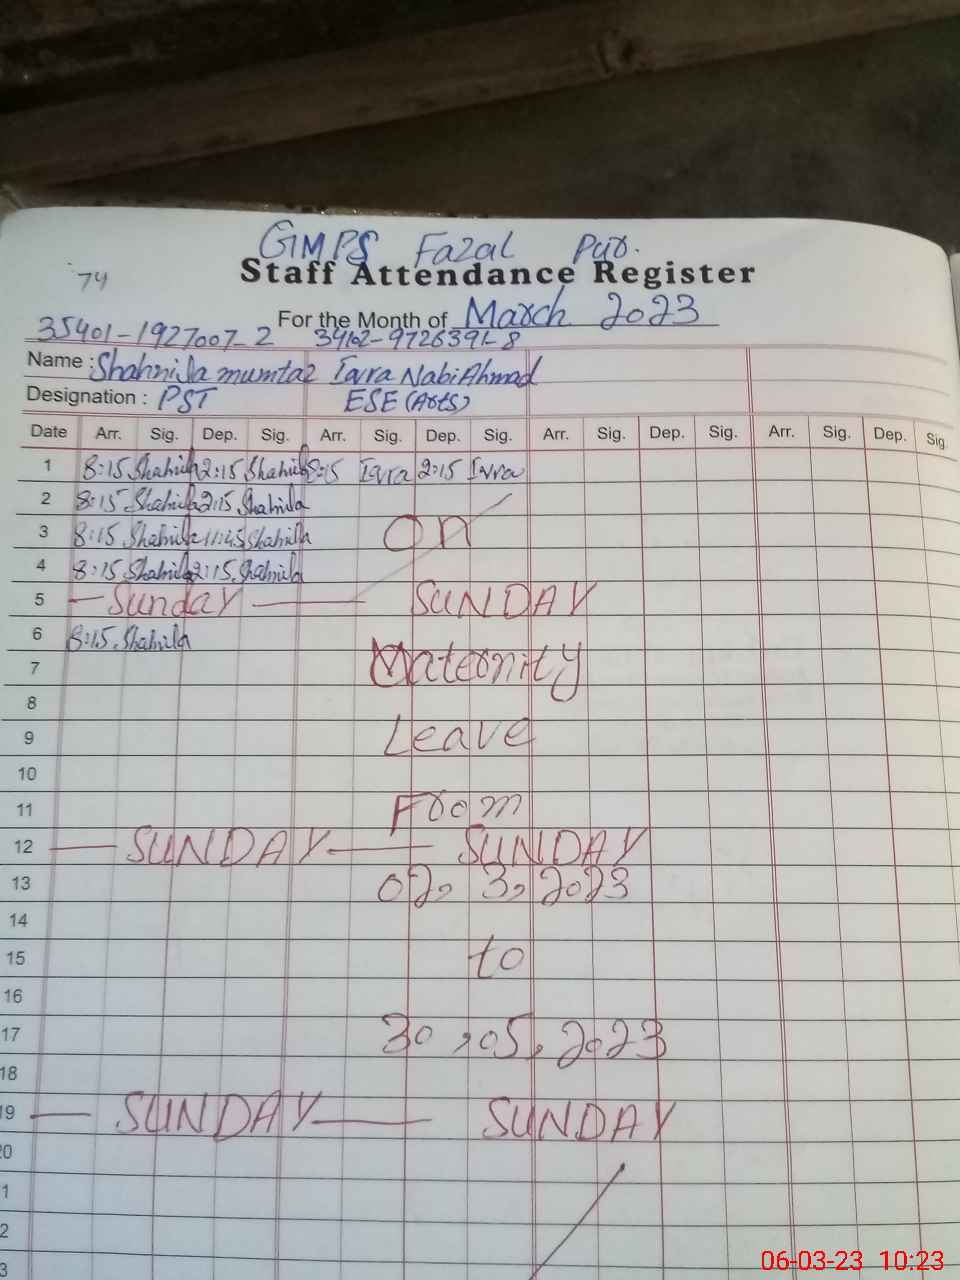 GMPS Fazal Pur.
74
Staff Attendance Register
For the Month of March 2023
35401-1927007-2 34102-9726391-8
Name : Shahnila mumtaz Iqra Nabi Ahmad
Designation : PST ESE (Arts)
Date Arr. Sig. Dep. Sig. Arr. Sig. Dep. Sig. Arr. Sig. Dep. Sig. Arr. Sig. Dep. Sig.
1 8:15 Shahnila 2:15 Shahnila 8:15 Iqra 2:15 Iqra
2 8:15 Shahnila 2:15 Shahnila
3 8:15 Shahnila 11:45 Shahnila ON
4 8:15 Shahnila 2:15 Shahnila
5 Sunday SUNDAY
6 8:15 Shahnila
7 Maternity
8
9 Leave
10
11 From
12 SUNDAY SUNDAY
13 02, 3, 2023
14
15 to
16
17 30, 05, 2023
18
19 SUNDAY SUNDAY
20
1
2
3
06-03-23 10:23